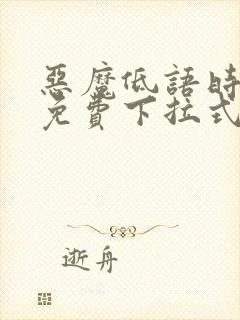 惡魔低語時
免費下拉式
逝舟